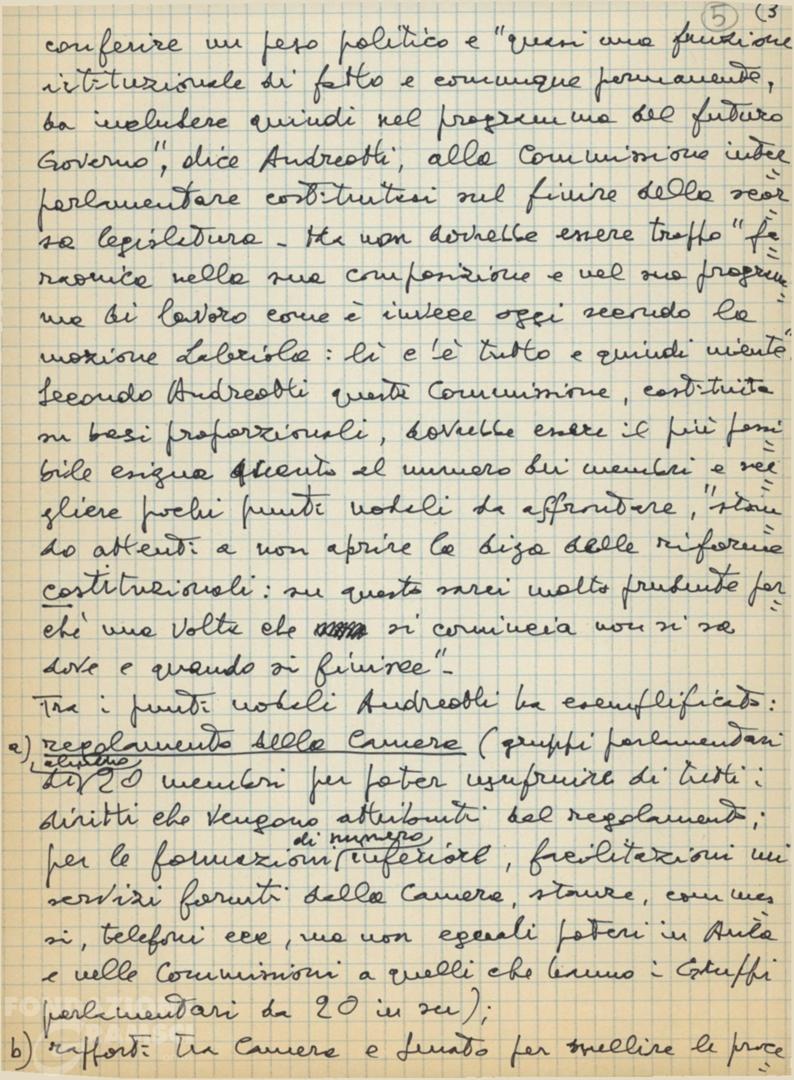 5 (3
conferire un peso politico e "quasi una funzione
istituzionale di fatto e comunque permanente,
da includere quindi nel programma del futuro
Governo", dice Andreotti, alla Commissione inter=
parlamentare costituitasi sul finire della scor=
sa legislatura - Ma non dovrebbe essere troppo "fa=
raonica nella sua composizione e nel suo program=
ma di lavoro come è invece oggi secondo la
mozione Labriola: lì c'è tutto e quindi niente".
Secondo Andreotti questa Commissione, costituita
su basi proporzionali, dovrebbe essere il più possi=
bile esigua quanto al numero dei membri e sce=
gliere pochi punti nodali da affrontare, "stan=
do attenti a non aprire la diga delle riforme
costituzionali: su questo sarei molto prudente per=
ché una volta che si comincia non si sa
dove e quando si finisce"-
Tra i punti nodali Andreotti ha esemplificato:
a) regolamento della Camera (gruppi parlamentari
almeno
di 20 membri per poter usufruire di tutti i
diritti che vengono attribuiti dal regolamento;
di numero
per le formazioni inferiori, facilitazioni nei
servizi forniti dalla Camera, stanze, commes=
si, telefoni ecc, ma non eguali poteri in Aula
e nelle Commissioni a quelli che hanno i Gruppi
parlamentari da 20 in su);
b) rapporti tra Camera e Senato per snellire le proce=
FONDAZIONE